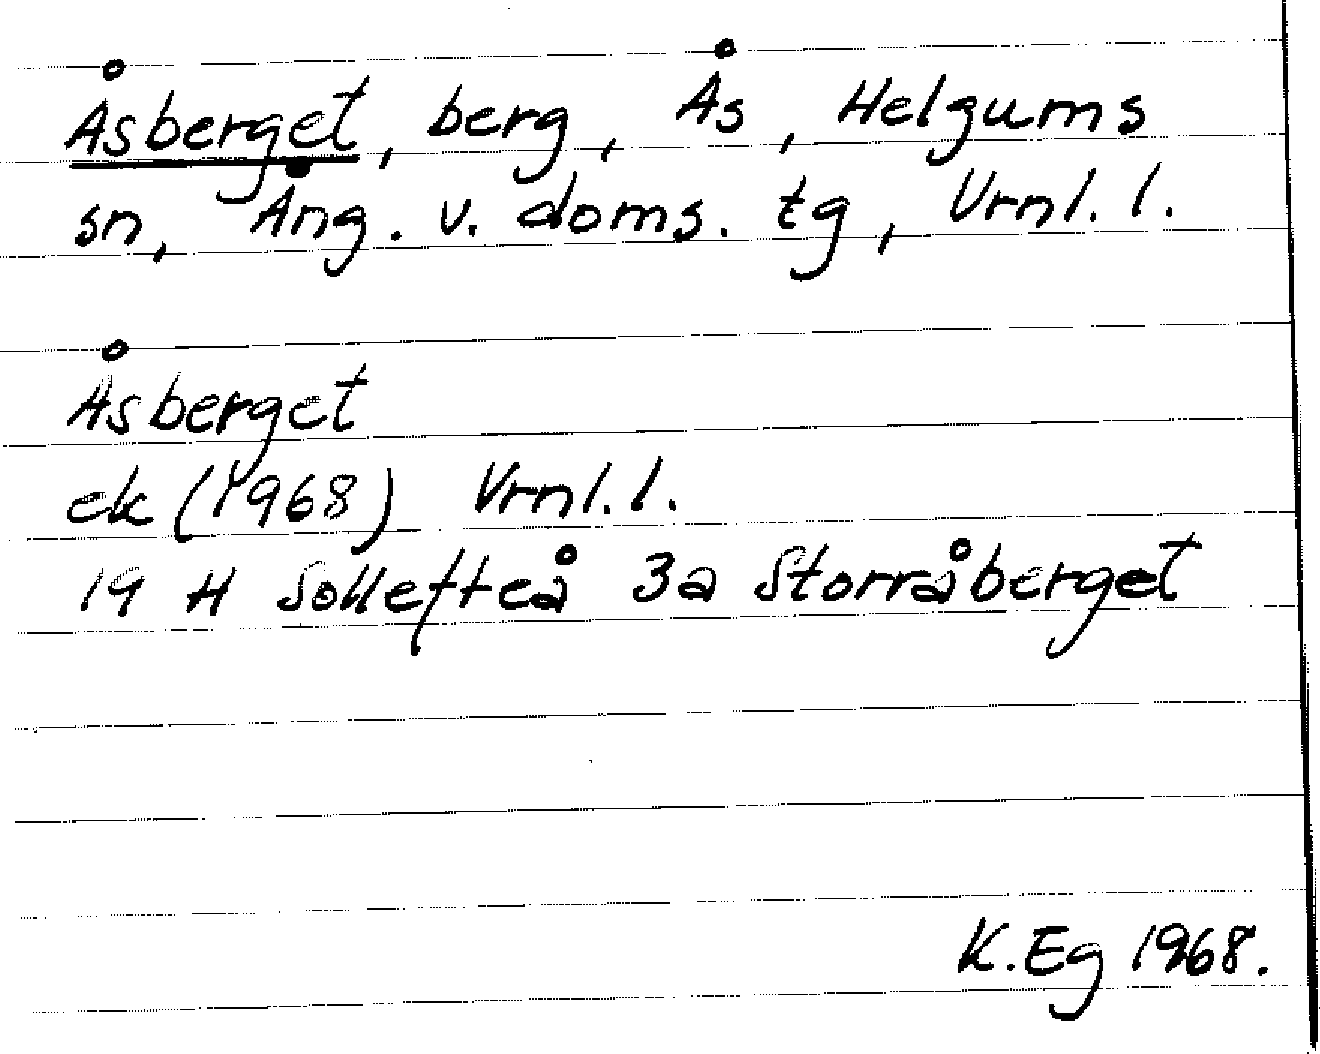 Åsberget, berg, Ås, Helgums
sn, Ång. v. doms. tg, Vrnl. l.
Åsberget
ek (1968) Vrnl. l.
19 H Sollefteå 3a Storråberget
K. Eg 1968.